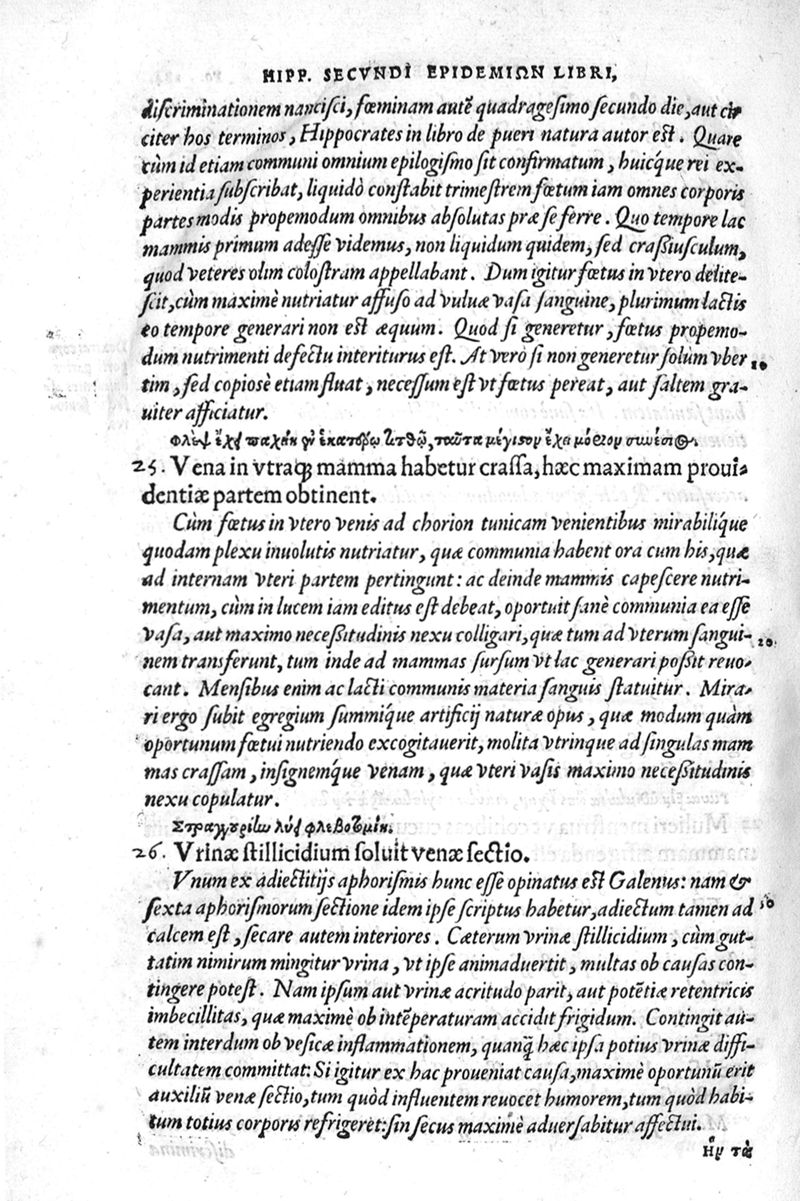 HIPP. SECVNDI EPIDEMIΩN LIBRI,
discriminationem nancisci, fœminam autẽ quadragesimo secundo die, aut cir
citer hos terminos, Hippocrates in libro de pueri natura autor est. Quare
cùm id etiam communi omnium epilogismo sit confirmatum, huicq́ue rei ex-
perientia subscribat, liquidò constabit trimestrem fœtum iam omnes corporis
partes modis propemodum omnibus absolutas præ se ferre. Quo tempore lac
mammis primum adesse videmus, non liquidum quidem, sed crassiusculum,
quod veteres olim colostram appellabant. Dum igitur fœtus in vtero delite-
scit, cùm maximè nutriatur affuso ad vuluæ vasa sanguine, plurimum lactis
eo tempore generari non est æquum. Quod si generetur, fœtus propemo-
dum nutrimenti defectu interiturus est. At verò si non generetur solùm vber
10
tim, sed copiosè etiam fluat, necessum est vt fœtus pereat, aut saltem gra-
uiter afficiatur.
Φλὲψ ἔχει παχείη ἐν ἑκατέρῳ τιτθῷ, ταῦτα μέγιστον ἔχει μόριον συνέσιος.
25. Vena in vtraq; mamma habetur crassa, hæc maximam proui-
dentiæ partem obtinent.
Cùm fœtus in vtero venis ad chorion tunicam venientibus mirabiliq́ue
quodam plexu inuolutis nutriatur, quæ communia habent ora cum his, quæ
ad internam vteri partem pertingunt: ac deinde mammis capescere nutri-
mentum, cùm in lucem iam editus est debeat, oportuit sanè communia ea esse
vasa, aut maximo necessitudinis nexu colligari, quæ tum ad vterum sangui-
20.
nem transferunt, tum inde ad mammas sursum vt lac generari possit reuo-
cant. Mensibus enim ac lacti communis materia sanguis statuitur. Mira-
ri ergo subit egregium summiq́ue artificij naturæ opus, quæ modum quàm
oportunum fœtui nutriendo excogitauerit, molita vtrinque ad singulas mam
mas crassam, insignemq́ue venam, quæ vteri vasis maximo necessitudinis
nexu copulatur.
Στραγγουρίην λύει φλεβοτομίη.
26. Vrinæ stillicidium soluit venæ sectio.
Vnum ex adiectitijs aphorismis hunc esse opinatus est Galenus: nam &
sexta aphorismorum sectione idem ipse scriptus habetur, adiectum tamen ad
30
calcem est, secare autem interiores. Cæterum vrinæ stillicidium, cùm gut-
tatim nimirum mingitur vrina, vt ipse animaduertit, multas ob causas con-
tingere potest. Nam ipsum aut vrinæ acritudo parit, aut potẽtiæ retentricis
imbecillitas, quæ maximè ob intẽperaturam accidit frigidum. Contingit au-
tem interdum ob vesicæ inflammationem, quanq̃ hæc ipsa potius vrinæ diffi-
cultatem committat: Si igitur ex hac proueniat causa, maximè oportunũ erit
auxiliũ venæ sectio, tum quòd influentem reuocet humorem, tum quòd habi-
tum totius corporis refrigeret: sin secus maximè aduersabitur affectui.
Ἢν τὰ